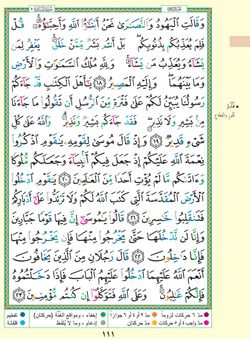 وَقَالَتِ ٱلْيَهُودُ وَٱلنَّصَٰرَىٰ نَحْنُ أَبْنَٰٓؤُا۟ ٱللَّهِ وَأَحِبَّٰٓؤُهُۥ ۚ قُلْ
فَلِمَ يُعَذِّبُكُم بِذُنُوبِكُم ۖ بَلْ أَنتُم بَشَرٌ مِّمَّنْ خَلَقَ ۚ يَغْفِرُ لِمَن
يَشَآءُ وَيُعَذِّبُ مَن يَشَآءُ ۚ وَلِلَّهِ مُلْكُ ٱلسَّمَٰوَٰتِ وَٱلْأَرْضِ
وَمَا بَيْنَهُمَا ۖ وَإِلَيْهِ ٱلْمَصِيرُ ١٨ يَٰٓأَهْلَ ٱلْكِتَٰبِ قَدْ جَآءَكُمْ
رَسُولُنَا يُبَيِّنُ لَكُمْ عَلَىٰ فَتْرَةٍ مِّنَ ٱلرُّسُلِ أَن تَقُولُوا۟ مَا جَآءَنَا
مِنۢ بَشِيرٍ وَلَا نَذِيرٍ ۖ فَقَدْ جَآءَكُم بَشِيرٌ وَنَذِيرٌ ۗ وَٱللَّهُ عَلَىٰ كُلِّ
شَىْءٍ قَدِيرٌ ١٩ وَإِذْ قَالَ مُوسَىٰ لِقَوْمِهِۦ يَٰقَوْمِ ٱذْكُرُوا۟
نِعْمَةَ ٱللَّهِ عَلَيْكُمْ إِذْ جَعَلَ فِيكُمْ أَنۢبِيَآءَ وَجَعَلَكُم مُّلُوكًا
وَءَاتَىٰكُم مَّا لَمْ يُؤْتِ أَحَدًا مِّنَ ٱلْعَٰلَمِينَ ٢٠ يَٰقَوْمِ ٱدْخُلُوا۟
ٱلْأَرْضَ ٱلْمُقَدَّسَةَ ٱلَّتِى كَتَبَ ٱللَّهُ لَكُمْ وَلَا تَرْتَدُّوا۟ عَلَىٰٓ أَدْبَارِكُمْ
فَتَنقَلِبُوا۟ خَٰسِرِينَ ٢١ قَالُوا۟ يَٰمُوسَىٰٓ إِنَّ فِيهَا قَوْمًا جَبَّارِينَ
وَإِنَّا لَن نَّدْخُلَهَا حَتَّىٰ يَخْرُجُوا۟ مِنْهَا فَإِن يَخْرُجُوا۟ مِنْهَا
فَإِنَّا دَٰخِلُونَ ٢٢ قَالَ رَجُلَانِ مِنَ ٱلَّذِينَ يَخَافُونَ
أَنْعَمَ ٱللَّهُ عَلَيْهِمَا ٱدْخُلُوا۟ عَلَيْهِمُ ٱلْبَابَ فَإِذَا دَخَلْتُمُوهُ
فَإِنَّكُمْ غَٰلِبُونَ ۚ وَعَلَى ٱللَّهِ فَتَوَكَّلُوٓا۟ إِن كُنتُم مُّؤْمِنِينَ ٢٣
١١١